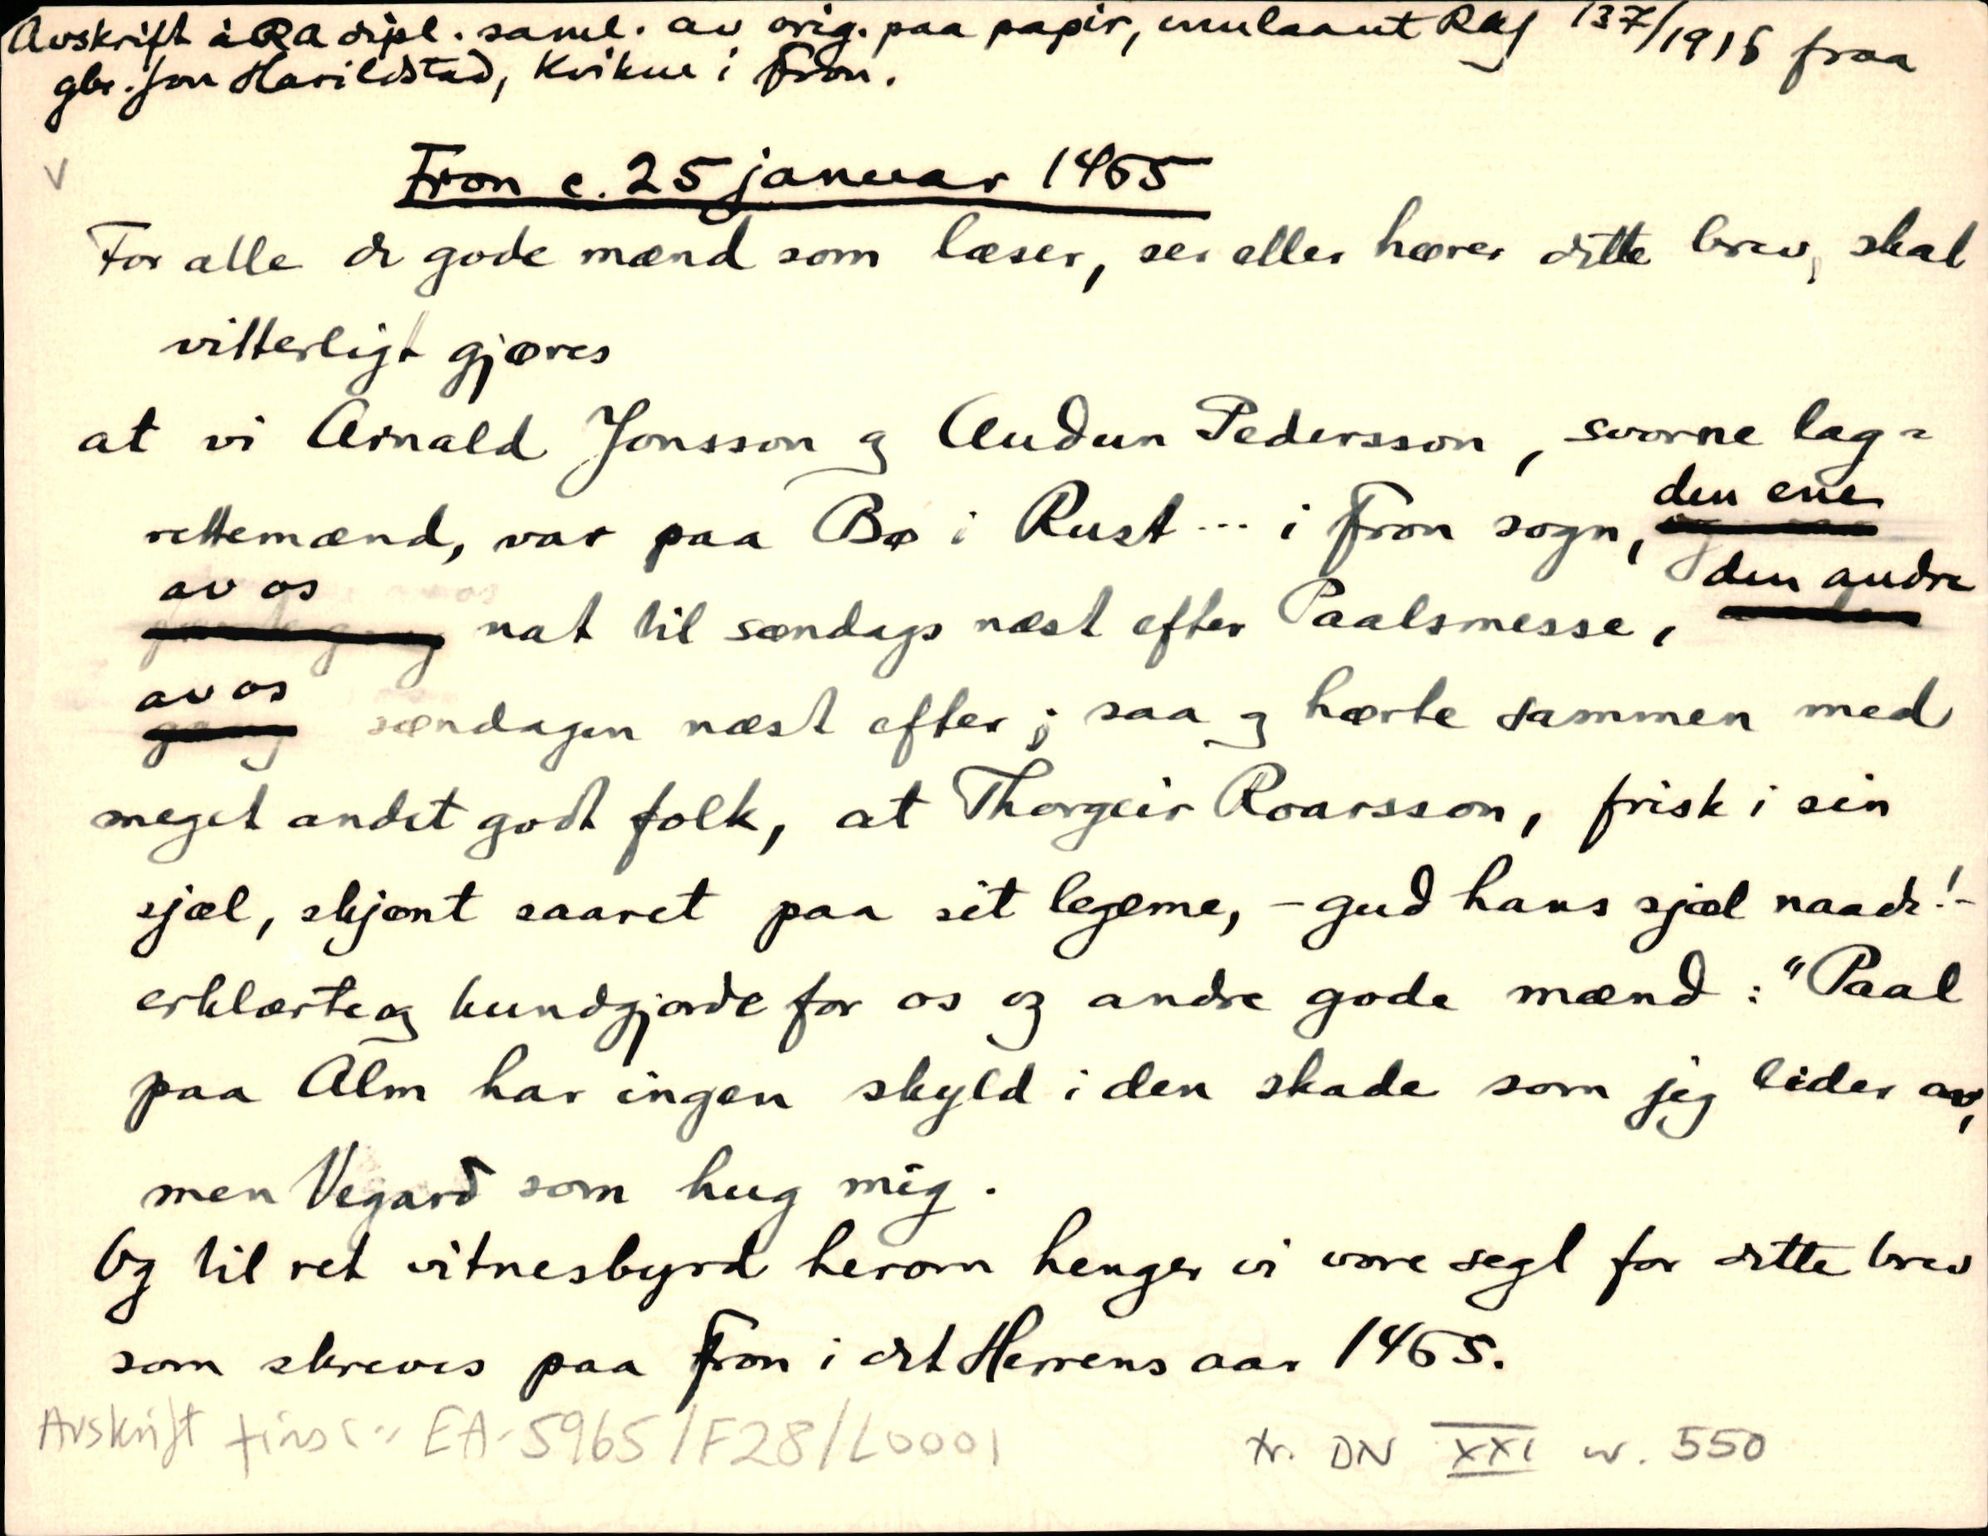 Avskrift i RA dipl. saml. av orig. paa papir, innlaant RAJ 137/1916 fraa
gbr. Jon Harildstad, Kvikne i Fron.
V
Fron c. 25 januar 1465
For alle de gode mænd som læser, ser eller hører dette brev, skal
vitterligt gjøres
at vi Arnald Jonsson og Audun Pedersson, svorne lag=
den ene
rettemænd, var paa Bø i Rust... i Fron sogn,
av os den andre
nat til søndags næst efter Paalsmesse,
av os
søndagen næst efter; saa og hørte sammen med
meget andet godt folk, at Thorgeir Roarsson, frisk i sin
sjæl, skjønt saaret paa sit legeme, - gud hans sjæl naade! -
erklærte og kundgjorde for os og andre gode mænd: "Paal
paa Alm har ingen skyld i den skade som jeg lider av,
men Vegard som hug mig.
Og til ret vitnesbyrd herom henger vi vore segl for dette brev
som skreves paa Fron i det Herrens aar 1465.
Avskrift fins i EA-5965/F28/L0001
tr. DN XXI nr. 550